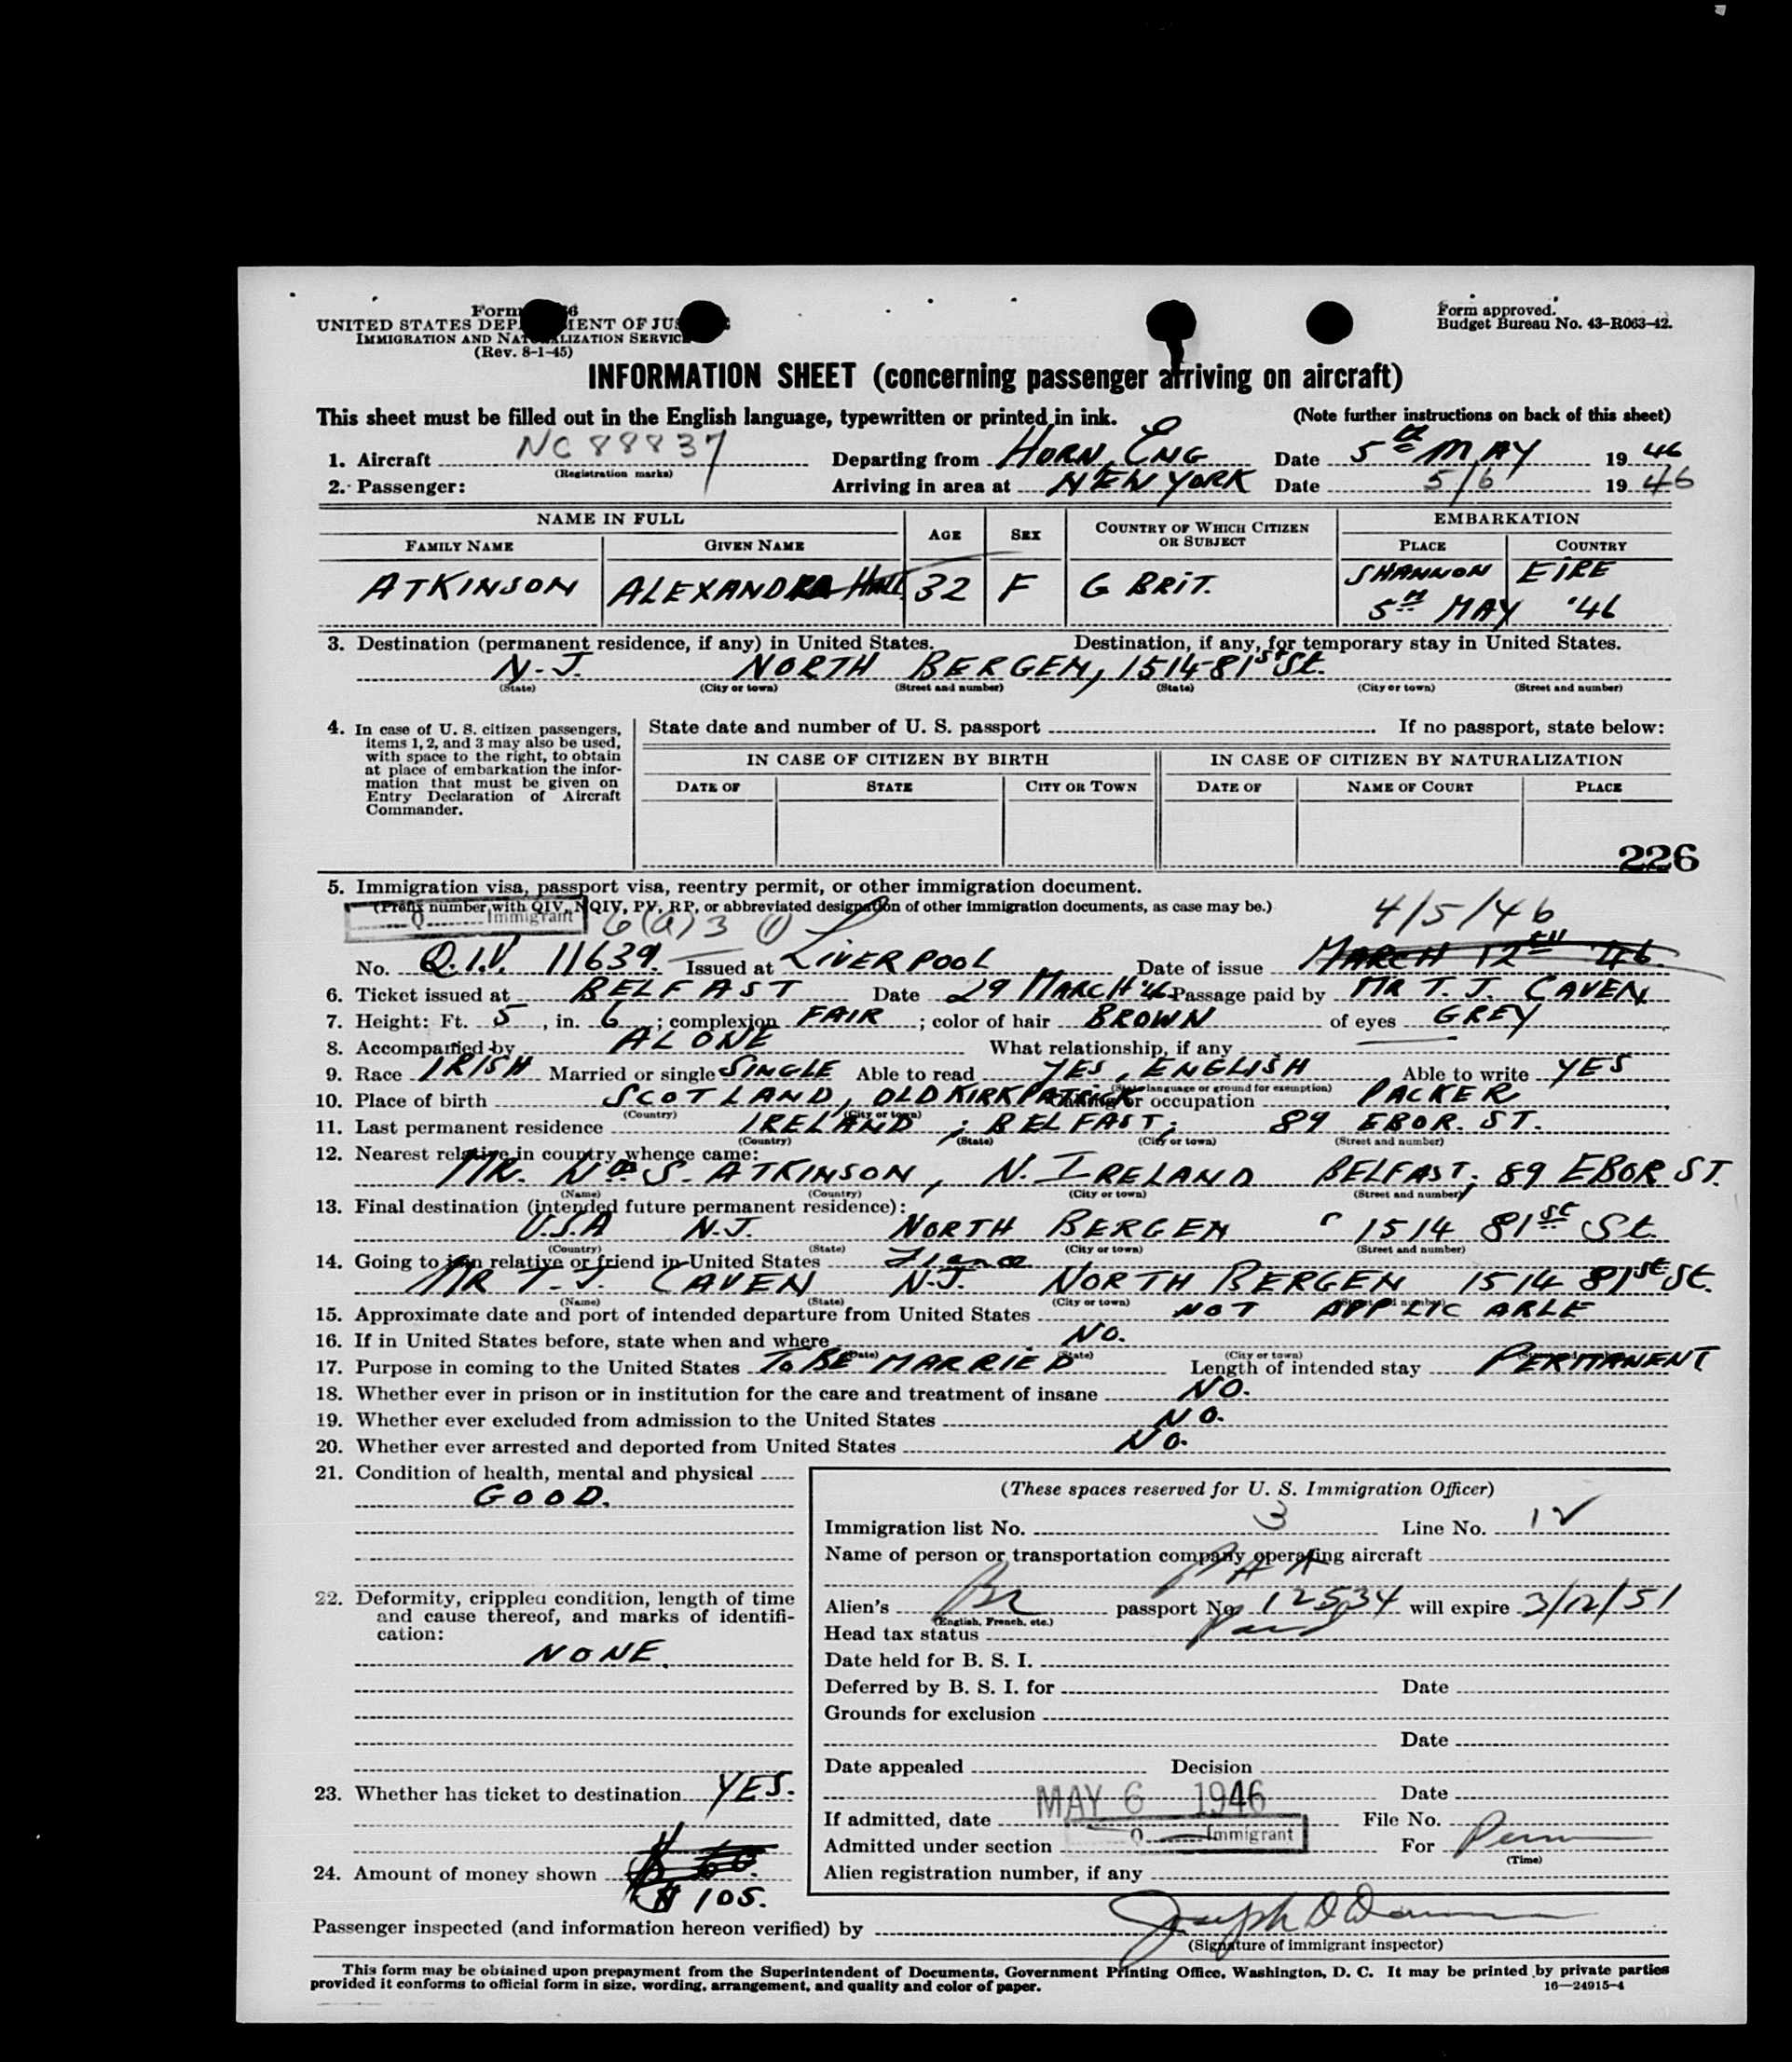 Form
UNITED STATES DEPARTMENT OF JUSTICE
IMMIGRATION AND NATURALIZATION SERVICE
(Rev. 8-1-45)
Form approved.
Budget Bureau No. 43-R063-42.
INFORMATION SHEET (concerning passenger arriving on aircraft)
This sheet must be filled out in the English language, typewritten or printed in ink. (Note further instructions on back of this sheet)
1. Aircraft NC 88837 Departing from HORN, ENG Date 5th MAY 1946
(Registration marks)
2. Passenger: Arriving in area at NEW YORK Date 5/6 1946
NAME IN FULL AGE SEX COUNTRY OF WHICH CITIZEN OR SUBJECT EMBARKATION
FAMILY NAME GIVEN NAME PLACE COUNTRY
ATKINSON ALEXANDRA 32 F G BRIT. SHANNON EIRE
5th MAY '46
3. Destination (permanent residence, if any) in United States. Destination, if any, for temporary stay in United States.
N.J. NORTH BERGEN, 1514-81st St.
(State) (City or town) (Street and number) (State) (City or town) (Street and number)
4. In case of U. S. citizen passengers, items 1, 2, and 3 may also be used, with space to the right, to obtain at place of embarkation the information that must be given on Entry Declaration of Aircraft Commander.
State date and number of U. S. passport If no passport, state below:
IN CASE OF CITIZEN BY BIRTH IN CASE OF CITIZEN BY NATURALIZATION
DATE OF STATE CITY OR TOWN DATE OF NAME OF COURT PLACE
226
5. Immigration visa, passport visa, reentry permit, or other immigration document.
(Prefix number with QIV, NQIV, PV, RP, or abbreviated designation of other immigration documents, as case may be.)
Q Immigrant 6(a)3 (1) 4/5/46
No. Q.I.V. 11639. Issued at LIVERPOOL Date of issue MARCH 12th '46.
6. Ticket issued at BELFAST Date 29 MARCH '46 Passage paid by MR T. J. CAVEN
7. Height: Ft. 5, in. 6; complexion FAIR; color of hair BROWN of eyes GREY
8. Accompanied by ALONE What relationship, if any
9. Race IRISH Married or single SINGLE Able to read YES, ENGLISH Able to write YES
(State language or ground for exemption)
10. Place of birth SCOTLAND, OLD KIRKPATRICK Calling or occupation PACKER
(Country) (City or town)
11. Last permanent residence IRELAND; BELFAST; 89 EBOR. ST.
(Country) (State) (City or town) (Street and number)
12. Nearest relative in country whence came:
MR. Wm. S. ATKINSON, N. IRELAND BELFAST; 89 EBOR ST.
(Name) (Country) (City or town) (Street and number)
13. Final destination (intended future permanent residence):
U.S.A N.J. NORTH BERGEN 1514 81st St.
(Country) (State) (City or town) (Street and number)
14. Going to join relative or friend in United States Fiance
MR T. J. CAVEN N.J. NORTH BERGEN 1514 81st St.
(Name) (State) (City or town) (Street and number)
15. Approximate date and port of intended departure from United States NOT APPLICABLE
16. If in United States before, state when and where NO.
(Date) (State) (City or town)
17. Purpose in coming to the United States TO BE MARRIED Length of intended stay PERMANENT
18. Whether ever in prison or in institution for the care and treatment of insane NO.
19. Whether ever excluded from admission to the United States NO.
20. Whether ever arrested and deported from United States NO.
21. Condition of health, mental and physical
GOOD.
22. Deformity, crippled condition, length of time and cause thereof, and marks of identification:
NONE.
23. Whether has ticket to destination YES.
24. Amount of money shown
$105.
(These spaces reserved for U. S. Immigration Officer)
Immigration list No. 3 Line No. 12
Name of person or transportation company operating aircraft
PAA
Alien's Br passport No. 12534 will expire 3/12/51
(English, French, etc.)
Head tax status Paid
Date held for B. S. I.
Deferred by B. S. I. for Date
Grounds for exclusion
Date
Date appealed Decision
Date
If admitted, date MAY 6 1946 File No.
Admitted under section Q Immigrant For Perm
(Time)
Alien registration number, if any
Passenger inspected (and information hereon verified) by Joseph D
(Signature of immigrant inspector)
This form may be obtained upon prepayment from the Superintendent of Documents, Government Printing Office, Washington, D. C. It may be printed by private parties
provided it conforms to official form in size, wording, arrangement, and quality and color of paper. 16—24915-4